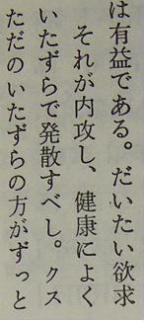 は有益である。だいたい欲求
それが内攻し、健康によく
いたずらで発散すべし。クス
ただのいたずらの方がずっと